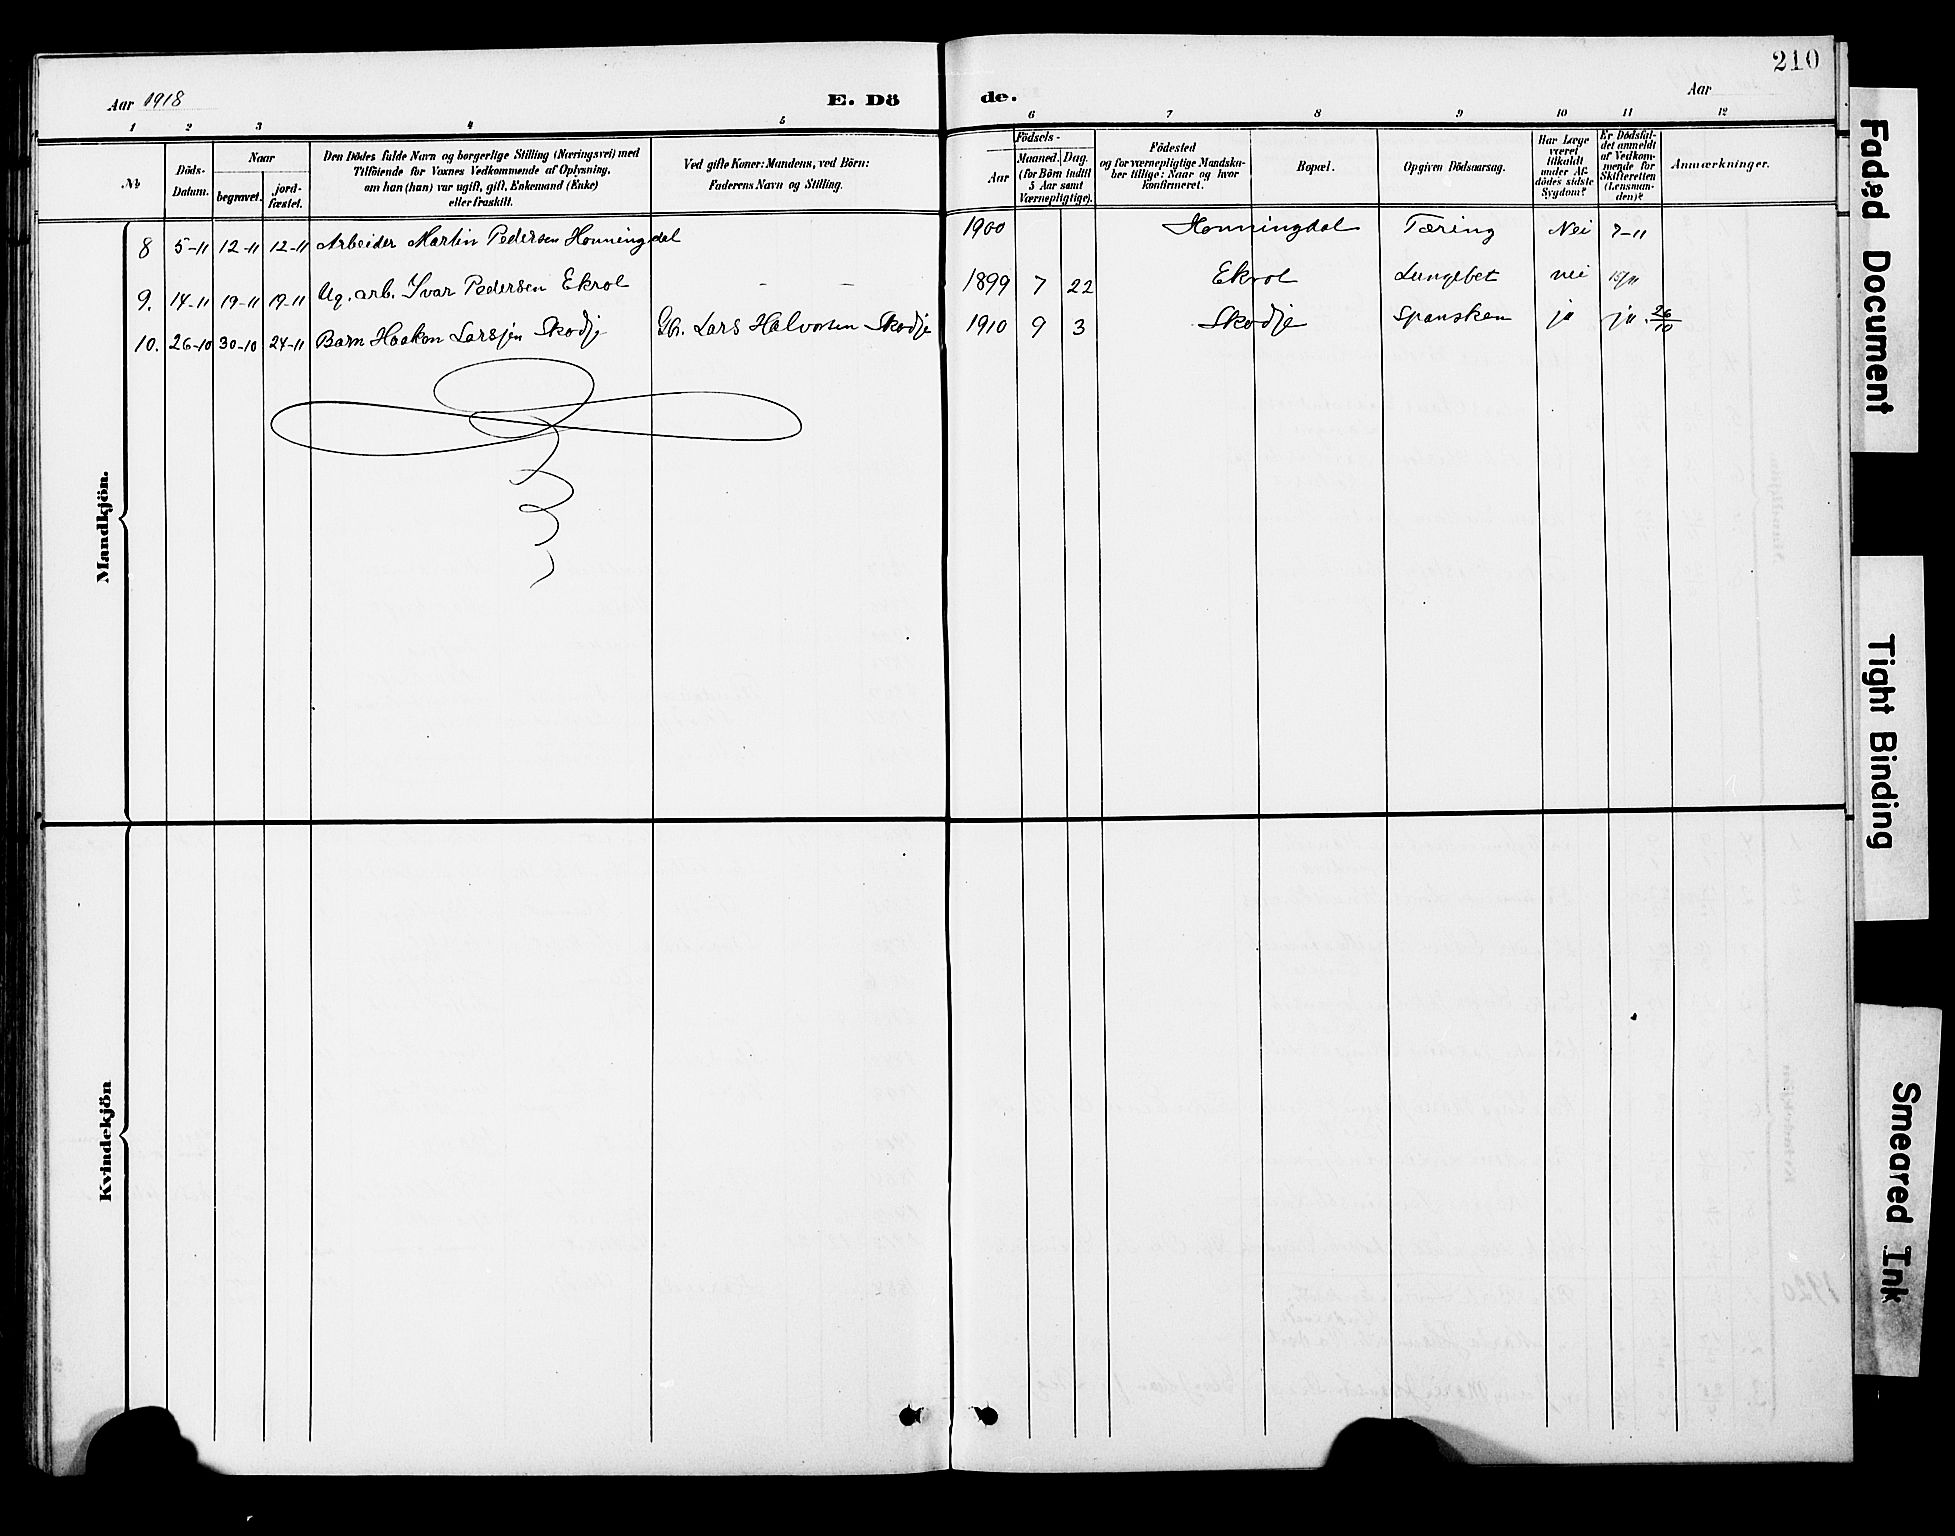 210
Aar 1918 E. Dö de. Aar
1 2 3 4 5 6 7 8 9 10 11 12
№
Döds-
Datum.
Naar
begravet.
jord-
fæstet.
Den Dödes fulde Navn og borgerlige Stilling (Næringsvei) med
Tilföiende for Voxnes Vedkommende af Oplysning,
om han (hun) var ugift, gift, Enkemand (Enke)
eller fraskilt.
Ved gifte Koner: Mandens, ved Börn:
Faderens Navn og Stilling.
Födsels-
Aar
Maaned. Dag.
(for Börn indtil
5 Aar samt
Værnepligtige).
Födested
og for værnepligtige Mandska-
ber tillige: Naar og hvor
konfirmeret.
Bopæl.
Opgiven Dödsaarsag.
Har Læge
været
tilkaldt
under Af-
dödes sidste
Sygdom?
Er Dödsfal-
det anmeldt
af Vedkom-
mende for
Skifteretten
(Lensman-
den)?
Anmærkninger.
Mandkjön.
8 5-11 12-11 12-11 Arbeider Martin Pedersen Honningdal 1900 Honningdal Tæring Nei 7-11
9. 14-11 19-11 19-11 Ug. arb. Ivar Pedersen Ekrol — — 1899 7 22 Ekrol Lungebet nei 15/11
10. 26-10 30-10 24-11 Barn Haakon Larsen Skodje Gbr. Lars Halvorsen Skodje 1910 9 3 Skodje Spansken ja ja. 26/10
Kvindekjön
Faded Document
Tight Binding
Smeared Ink